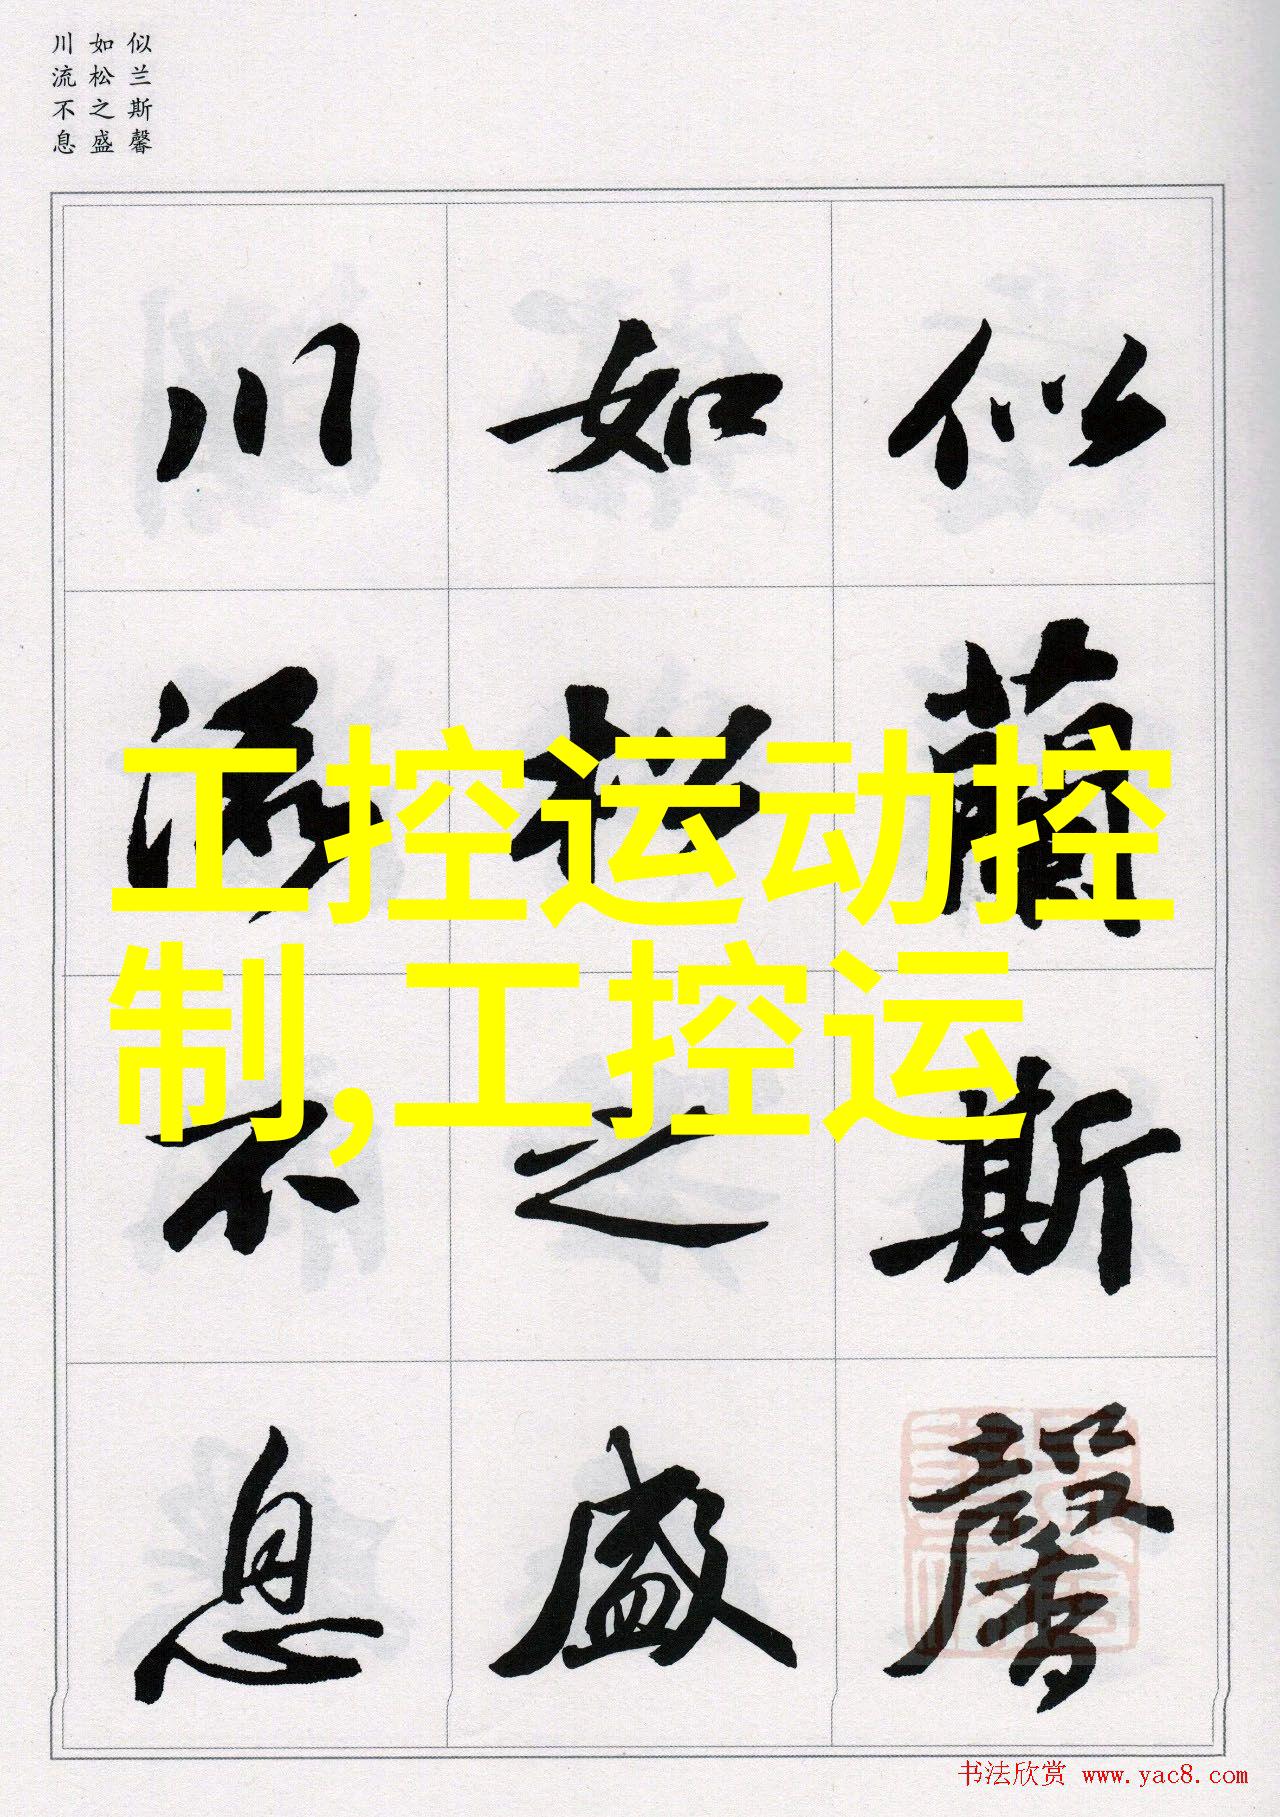 似兰斯馨
如松之盛
川流不息
似蘭斯馨
如松之盛
川流不息
工控运动控
制,工控运
书法欣赏 www.yac8.com